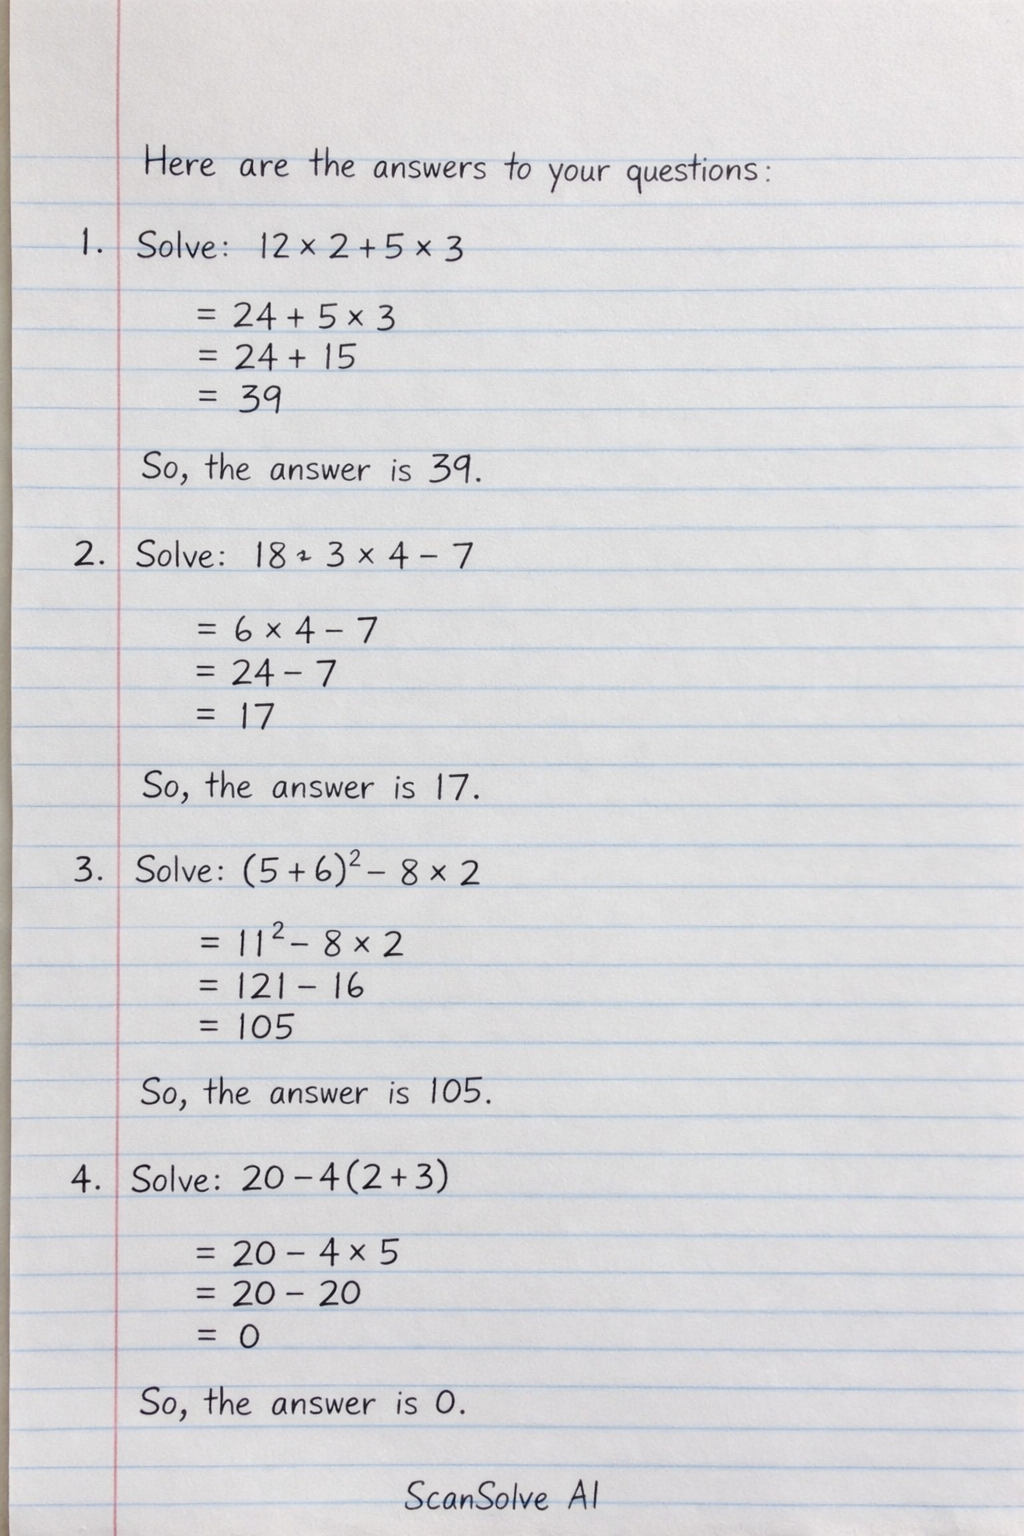 Here are the answers to your questions:
1. Solve: 12 × 2 + 5 × 3
= 24 + 5 × 3
= 24 + 15
= 39
So, the answer is 39.
2. Solve: 18 3 × 4 − 7
= 6 × 4 − 7
= 24 − 7
= 17
So, the answer is 17.
3. Solve: (5 + 6)² − 8 × 2
= 11² − 8 × 2
= 121 − 16
= 105
So, the answer is 105.
4. Solve: 20 − 4(2 + 3)
= 20 − 4 × 5
= 20 − 20
= 0
So, the answer is 0.
ScanSolve AI